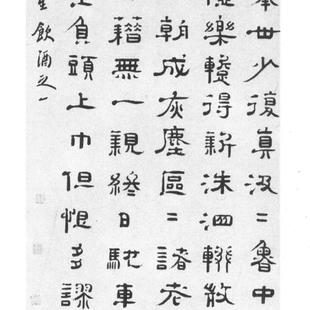 世少復真汲〻魯中
樂蹔得新洙泗輟微
朝成灰塵區〻諸老
籍無一親終日馳車
負頭上巾但恨多謬
飲酒之一